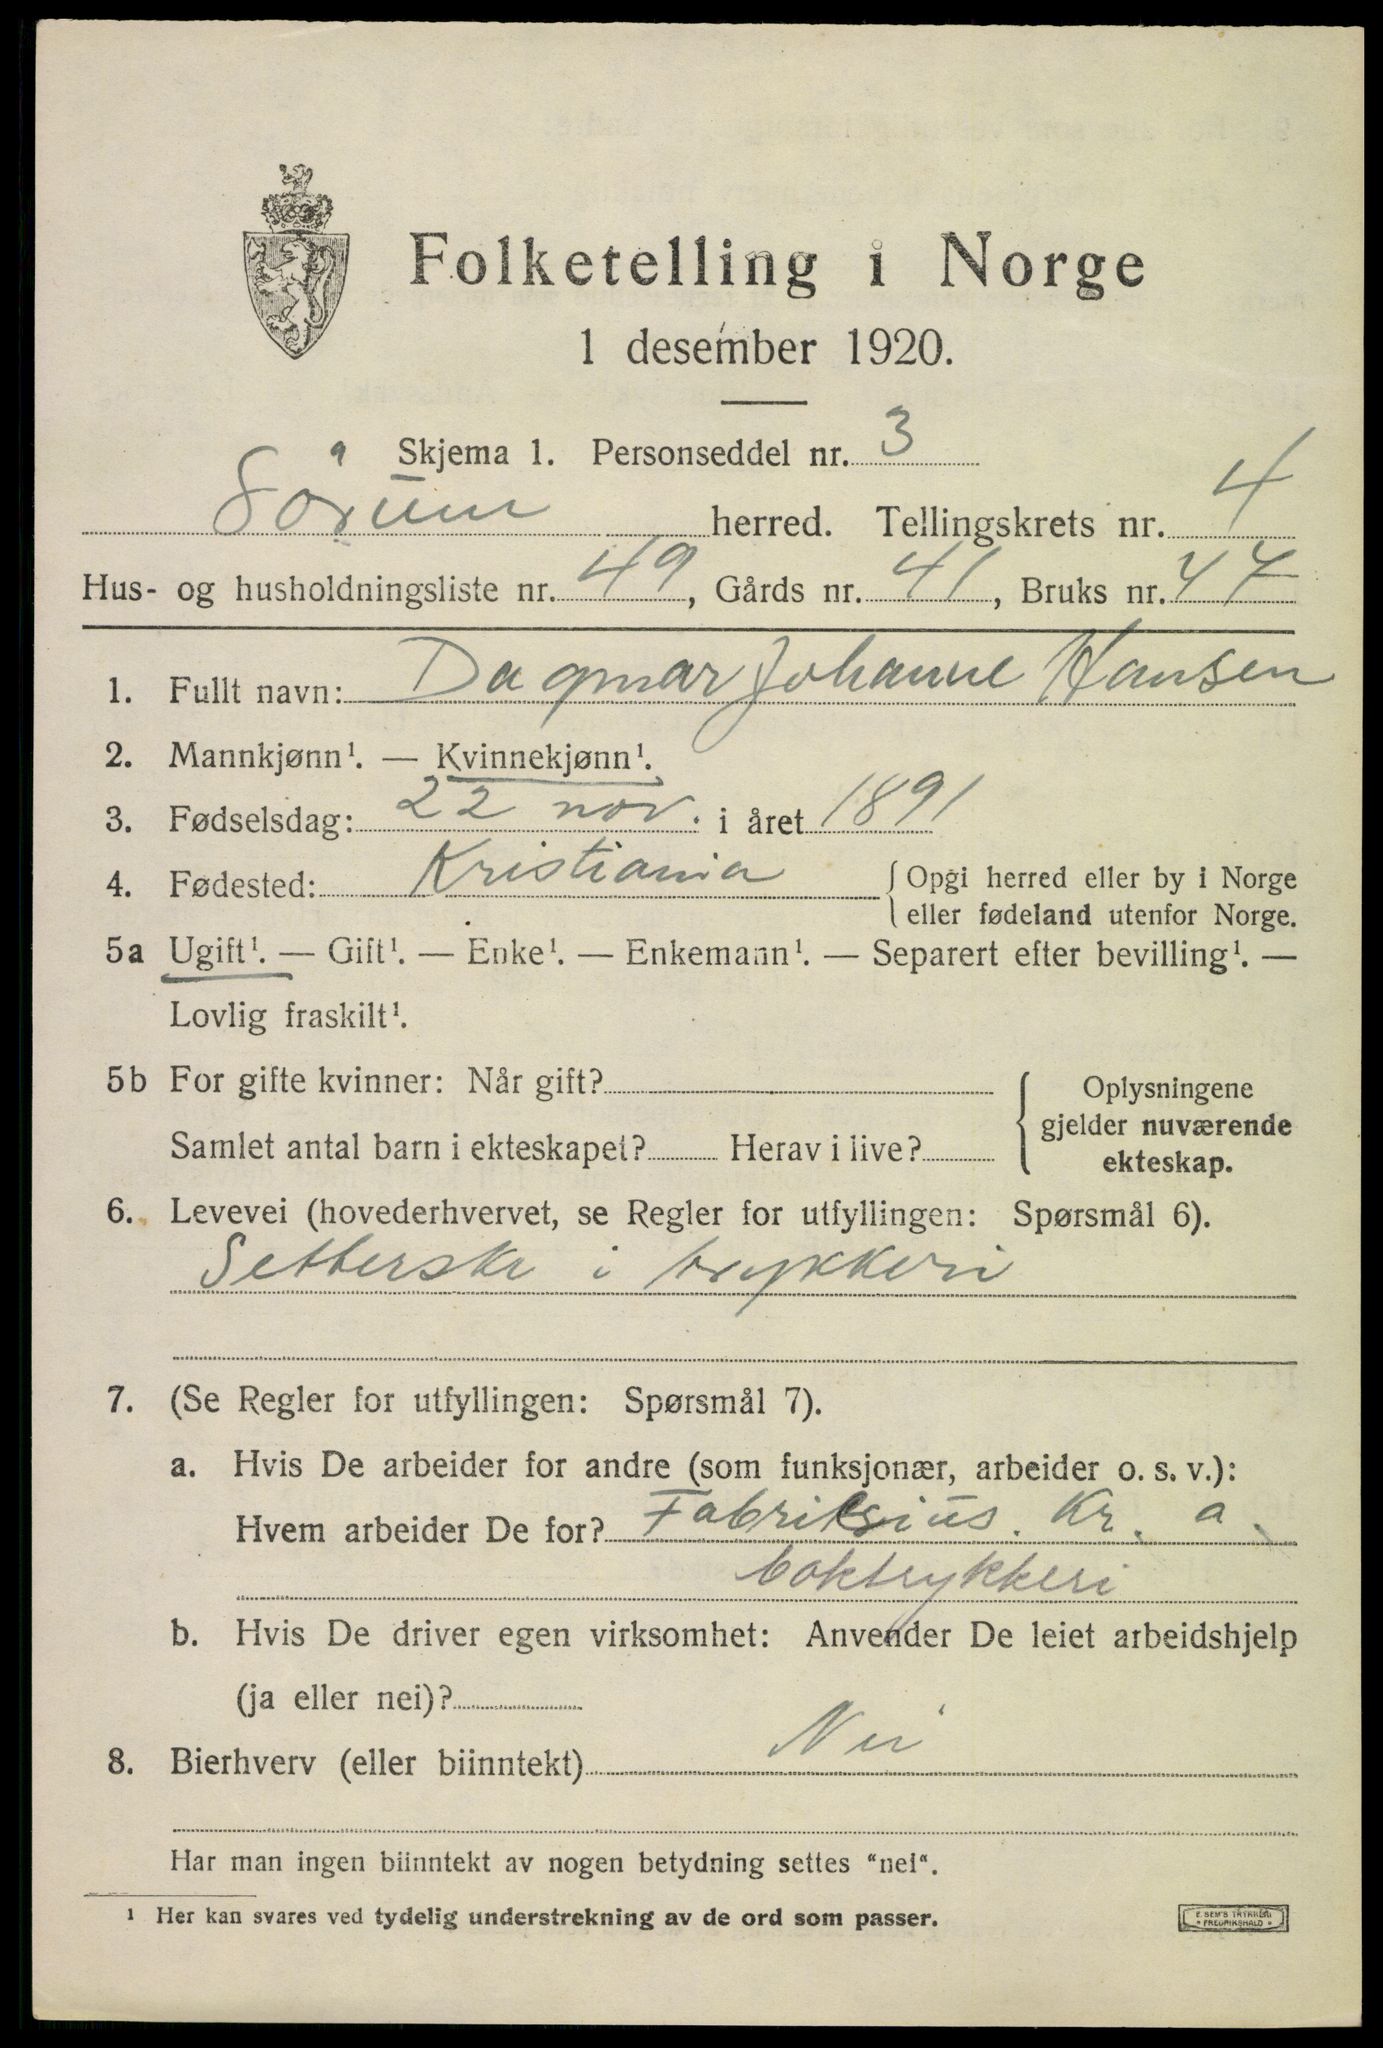 Folketelling i Norge
1 desember 1920.
Skjema 1. Personseddel nr. 3
Sörum herred. Tellingskrets nr. 4
Hus- og husholdningsliste nr. 49, Gårds nr. 41, Bruks nr. 47
1. Fullt navn: Dagmar Johanne Hansen
2. Mannkjønn¹. — Kvinnekjønn¹.
3. Fødselsdag: 22 nov. i året 1891
4. Fødested: Kristiania { Opgi herred eller by i Norge
eller fødeland utenfor Norge.
5a Ugift¹. — Gift¹. — Enke¹. — Enkemann¹. — Separert efter bevilling¹. —
Lovlig fraskilt¹.
5b For gifte kvinner: Når gift? { Oplysningene
gjelder nuværende
Samlet antal barn i ekteskapet? Herav i live?
ekteskap.
6. Levevei (hovederhvervet, se Regler for utfyllingen: Spørsmål 6).
Setterske i trykkeri
7. (Se Regler for utfyllingen: Spørsmål 7).
a. Hvis De arbeider for andre (som funksjonær, arbeider o. s. v.):
Hvem arbeider De for? Kr. a.
boktrykkeri
b. Hvis De driver egen virksomhet: Anvender De leiet arbeidshjelp
(ja eller nei)?
8. Bierhverv (eller biinntekt) Nei
Har man ingen biinntekt av nogen betydning settes "nei".
¹ Her kan svares ved tydelig understrekning av de ord som passer.
E. SEM'S TRYKKERI
FREDRIKSHALD